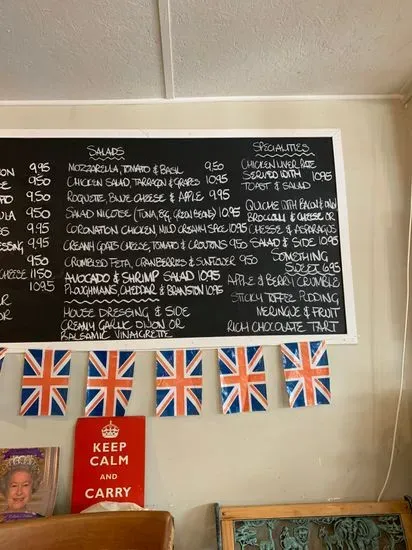 SALADS
MOZZARELLA, TOMATO & BASIL 9.50
CHICKEN SALAD, TARRAGON & GRAPES 10.95
ROQUETTE, BLUE CHEESE & APPLE 9.95
SALAD NICOISE (TUNA, EGG, GREEN BEANS) 10.95
CORONATION CHICKEN, MILD CREAMY SPICE 10.95
CREAMY GOATS CHEESE, TOMATO & CROUTONS 9.50
CRUMBLED FETA, CRANBERRIES & SUNFLOWER 9.50
AVOCADO & SHRIMP SALAD 10.95
PLOUGHMANS, CHEDDAR & BRANSTON 10.95
HOUSE DRESSING & SIDE
CREAMY GARLIC, DIJON OR
BALSAMIC VINAIGRETTE
SPECIALITIES
CHICKEN LIVER PATE
SERVED WITH 10.95
TOAST & SALAD
QUICHE WITH BACON &
BROCCOLI & CHEESE OR
CHEESE & ASPARAGUS
SALAD & SIDE 10.95
SOMETHING
SWEET 6.95
APPLE & BERRY CRUMBLE
STICKY TOFFEE PUDDING
MERINGUE & FRUIT
RICH CHOCOLATE TART
ON 9.95
E 9.50
TO 9.50
ULA 9.50
S 9.95
ESSING 9.95
CHEESE 11.50
10.95
AR
AR
KEEP
CALM
AND
CARRY